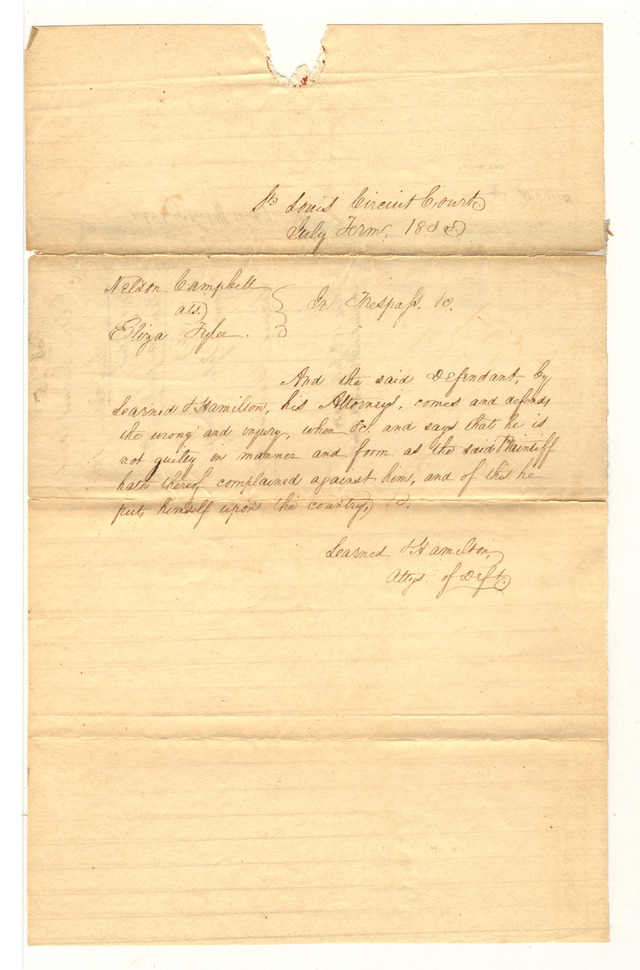 St Louis Circuit Court
July Term, 18
Nelson Campbell
ats.
Eliza Tyler.
In Trespass. &c.
And the said Defendant, by
Learned & Hamilton, his Attorneys, comes and defends
the wrong and injury, when &c. and says that he is
not guilty in manner and form as the said Plaintiff
hath thereof complained against him, and of this he
puts himself upon the country, &c.
Learned & Hamilton,
Attys. of Deft.